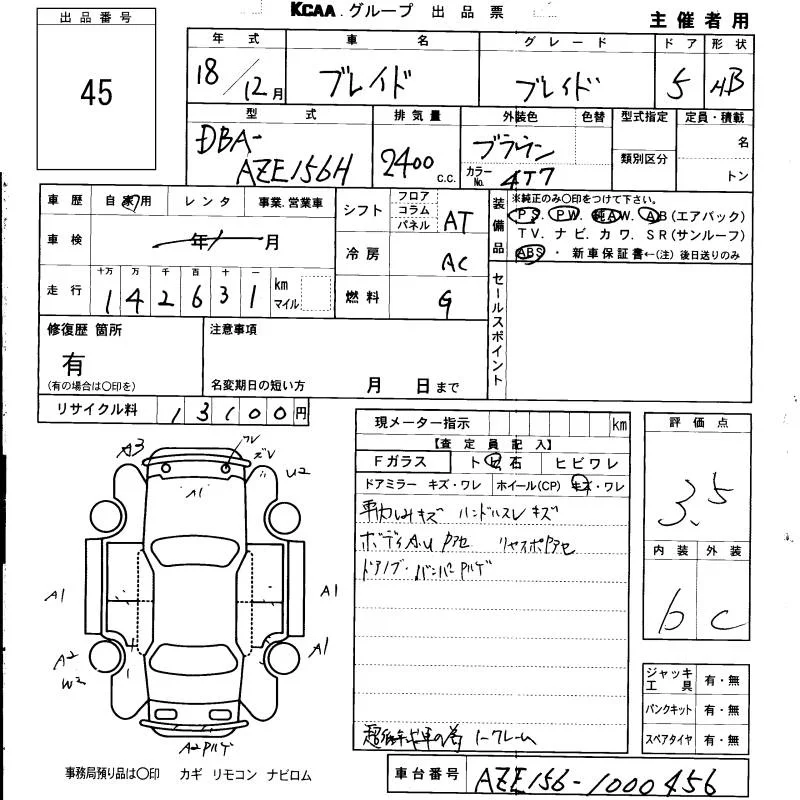 KCAA グループ 出品票
主催者用
出品番号
45
年式 車名 グレード ドア 形状
18/12月 ブレイド ブレイド 5 HB
型式 排気量 外装色 色替 型式指定 定員・積載
DBA-AZE156H 2400 c.c. ブラウン カラーNo. 4T7 類別区分 名 トン
車歴 自家用 レンタ 事業.営業車
シフト フロア コラム パネル AT
装備品 ※純正のみ○印をつけて下さい。
PS. PW. 純AW. AB(エアバック)
TV. ナビ. カワ. SR(サンルーフ)
ABS ・ 新車保証書←(注) 後日送りのみ
車検 年 月
冷房 AC
走行 十万 万 千 百 十 一
142631 km マイル
燃料 G
セールスポイント
修復歴 箇所
有
(有の場合は○印を)
注意事項
名変期日の短い方 月 日まで
リサイクル料 13100円
現メーター指示 km
【査定員記入】
Fガラス ト ビ 石 ヒビワレ
ドアミラー キズ・ワレ ホイール(CP) キズ・ワレ
ハンドルスレ キズ
評価点
3.5
内装 外装
b c
A3 ワレ ズレ U2
A1
A1 A1
A2 W2 A1
A2 ハゲ
ジャッキ工具 有・無
パンクキット 有・無
スペアタイヤ 有・無
事務局預り品は○印 カギ リモコン ナビロム
車台番号 AZE156-1000456